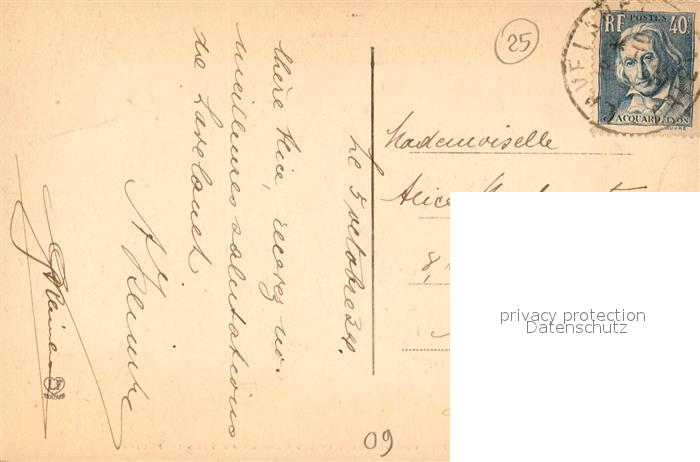 Le 5 octobre 34.
Chère Alice, recevez nos
meilleures salutations
de Lavelanet
25
RF POSTES 40c
JACQUARD-LYON
LAVELANET
Mademoiselle
Alice
8,
09
privacy protection
Datenschutz